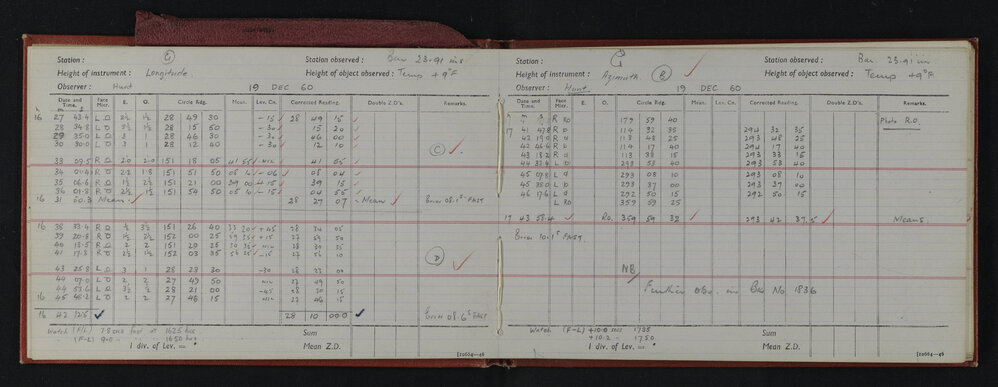 Station :
Station observed : Bar 23.91 ins
Height of instrument : Longitude.
Height of object observed : Temp +9°F
Observer : Hunt
19 DEC 60
Date and Time Face Micr. E. O. Circle Rdg. Mean. Lev. Cn. Corrected Reading. Double Z.D's. Remarks.
16 27 43.4 L O 2½ 1½ 28 49 30 -15 28 49 15
28 34.8 L O 28 15 50 -30 15 20
29 35.0 L O 1 28 46 30 -30 46 00
30 30.0 L O 3 1 28 12 40 -30 12 10
33 09.5 R O 2.0 2.0 151 18 05 41 55 NIL 41 55
34 01.4 R O 2.2 1.8 151 51 50 05 04
35 06.6 R O 1½ 2½ 151 21 00 39 00 +15 39 15
36 01.8 R O 2½ 1½ 151 54 50 -15 04 55
16 31 50.3 Mean 28 27 07 Mean Error 08.1s FAST
16 38 33.4 R O 151 26 40 33 20 +45 28 34 05
39 20.8 R O 152 00 25 +15 27 59 50
40 13.5 R O 2 2 151 20 25 NIL
41 17.8 R O 2½ 1½ 152 03 35 56 25 -15 27 56 10
43 25.8 L O 3 1 28 23 30 -30 28 23 00
44 07.0 L O 2 2 27 49 50 NIL 27 49 50
44 53.6 L O 28 21 00 -45 28 20 15
16 45 48.2 L O 2 2 27 46 15 NIL 27 46 15
16 42 12.5 28 10 00.0 Error 08.6s FAST
Watch (F-L) 7.8 secs fast at 1625 hrs
(F-L) 9.0 1650 hrs
Sum
1 div. of Lev. =
Mean Z.D.
[10664—46
Station :
Station observed : Bar 23.91 ins
Height of instrument : Azimuth. B
Height of object observed : Temp +9°F
Observer : Hunt.
19 DEC 60
Date and Time Face Micr. E. O. Circle Rdg. Mean. Lev. Cn. Corrected Reading. Double Z.D's. Remarks.
R RO 179 59 40 Photo R.O.
17 41 47.8 R O 114 32 35 294 32 35
42 19.0 R O 113 48 25 293 48 25
42 46.6 R O 114 17 40 294 17 40
43 18.2 R O 113 33 15 293 33 15
44 32.4 L O 293 53 40 293 53 40
45 07.8 L O 293 08 10 293 08 10
45 35.0 L O 293 37 00 293 37 00
46 17.6 L O 292 50 15 292 50 15
L RO 359 59 25
17 43 58.4 RO. 359 59 32 293 42 37.5 Means.
Error 10.1s FAST.
NB
Further obs. in Bk No 1836
Watch (F-L) +10.0 secs 1735
+10.2 1750
Sum
1 div. of Lev. =
Mean Z.D.
[10664—46